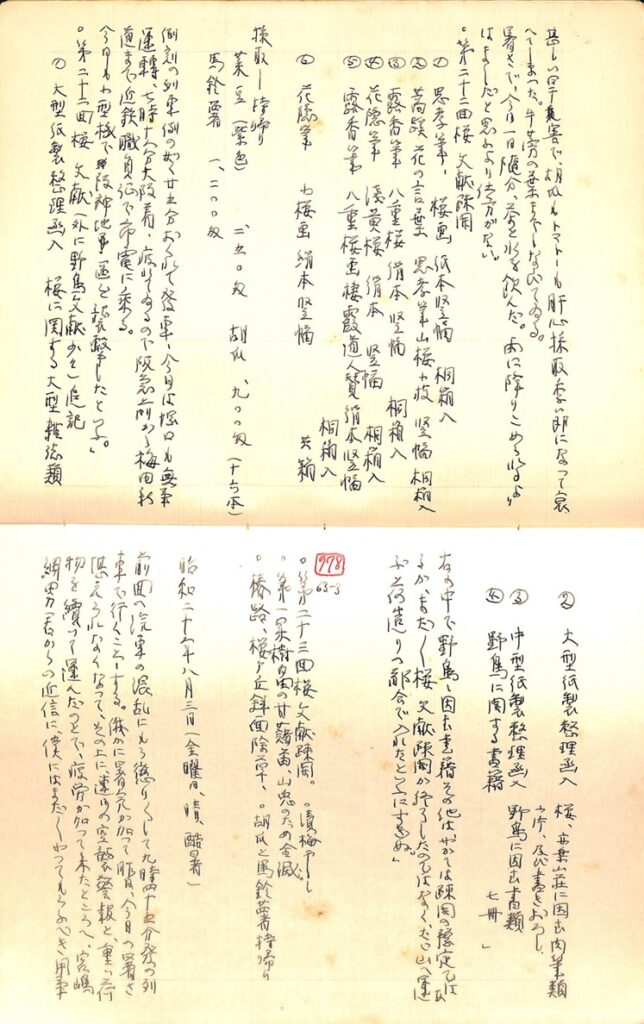 甚しい旱害で、胡瓜もトマトーも肝心採取季い前になって哀
へてしまった。牛蒡の葉までしなびてゐる。
暑さで、今日一日随分、茶と水を飲んだ。雨に降りこめられるより
はましだと思ふより仕方がない。
。第二十二回桜文献疎開
① 思孝筆、桜画 紙本竪幅 桐箱入
② 花の言葉 思孝筆山桜小枝 竪幅 桐箱入
③ 露香筆 八重桜 絹本竪幅 桐箱入
④ 花隠筆 浅黄桜 絹本竪幅 桐箱入
⑤ 露香筆 八重桜画棲霞道人賛 絹本竪幅
桐箱入
⑥ 花隠筆 小桜画 絹本竪幅 共箱
採取し持帰り
菜豆(紫色) 二五〇匁 胡瓜 九〇〇匁(十六本)
馬鈴薯 一、二〇〇匁
例刻の列車例の如く廿五分おくれて発車、今日は塚口も無事
運転、七時十八分大阪着、疲れてゐるので阪急前から梅田新
道まで近鉄職員伝で市電に乗る。
今日も小型機で阪神地帯を襲撃したといふ。」
。第二十二回桜文献(外に野鳥文献少々)追記
① 大型紙製整理函入 桜に関する大型雑誌類
② 大型紙製整理函入 桜、山荘に因む肉筆類
③ 中型紙製整理函入 野鳥に因む書類
④ 野鳥に関する書籍 七冊 」
右の中で野鳥に因む書籍その他はやがては疎開の予定では
あるが、まだ桜文献疎開が終了したのではなく、山へ運
ぶ荷造りの都合で入れたことにすぎぬ。」
978
63-3
。第二十三回桜文献疎開。 。漬梅干し
。第一果樹園の甘藷苗、山兎のため全滅
。椿路、桜ヶ丘斜面除草、 。胡瓜と馬鈴薯持帰り
昭和二十年八月三日(金曜日、晴、酷暑)
前回の汽車の混乱にもう懲りて九時四十五分発の列
車で行くことにする。俄かに暑気が加って昨日、今日の暑さ
堪えられなくなって、その上に連日の空襲警報と、重い荷
物を続って運んだので、疲労が加って来たところへ、宮嶋
綱男君からの近信に、僕にはまだやってもらふべき用事